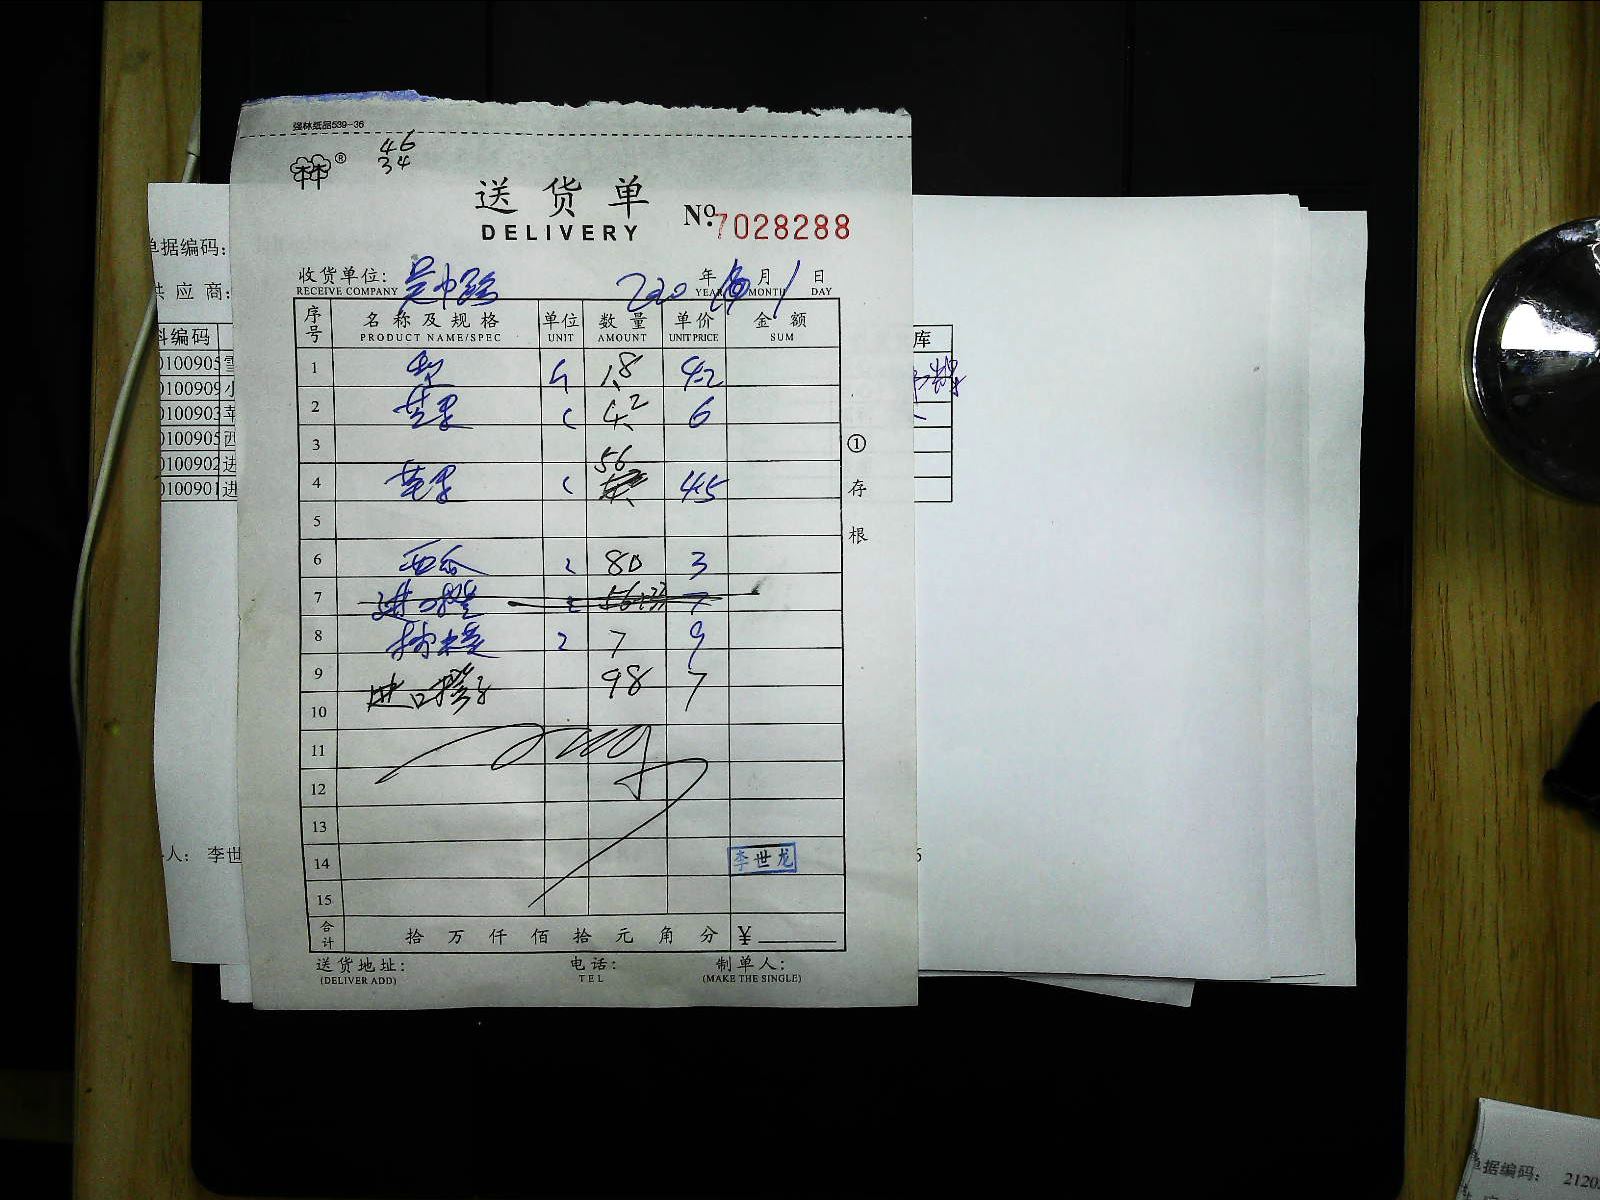 强林纸品539-36
46
34
林林®
送货单
DELIVERY
№.7028288
收货单位: 吴中路 年 月 1 日
RECEIVE COMPANY YEAR MONTH DAY
序号 名称及规格 单位 数量 单价 金额
PRODUCT NAME/SPEC UNIT AMOUNT UNIT PRICE SUM
1 梨 1.8 4.2
2 苹果 4.2 6
3
4 苹果 56 4.5
5
6 西瓜 80 3
7 进口橙 7
8 7 9
9 进口橙子 98 7
10
11
12
13
14 李世龙
15
合计 拾 万 仟 佰 拾 元 角 分 ¥
送货地址: 电话: 制单人:
(DELIVER ADD) TEL (MAKE THE SINGLE)
①存根
单据编码:
供应商:
料编码
0100905 雪
0100909 小
0100903 苹
0100905 西
0100902 进
0100901 进
人: 李世
库
单据编码: 2120